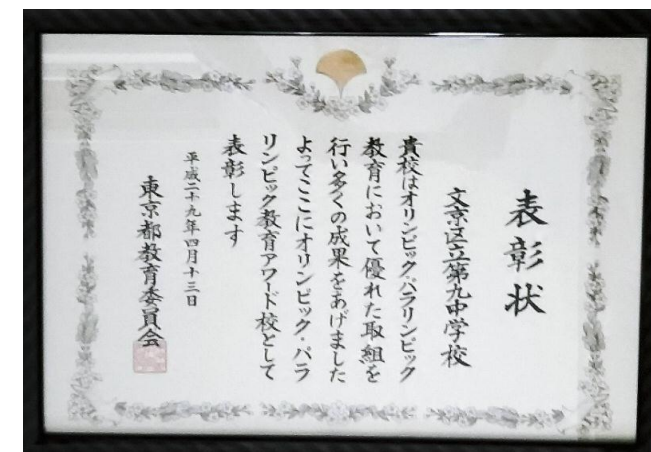 表彰状
文京区立第九中学校
貴校はオリンピック・パラリンピック
教育において優れた取組を
行い多くの成果をあげました
よってここにオリンピック・パラ
リンピック教育アワード校として
表彰します
平成二十九年四月十三日
東京都教育委員会